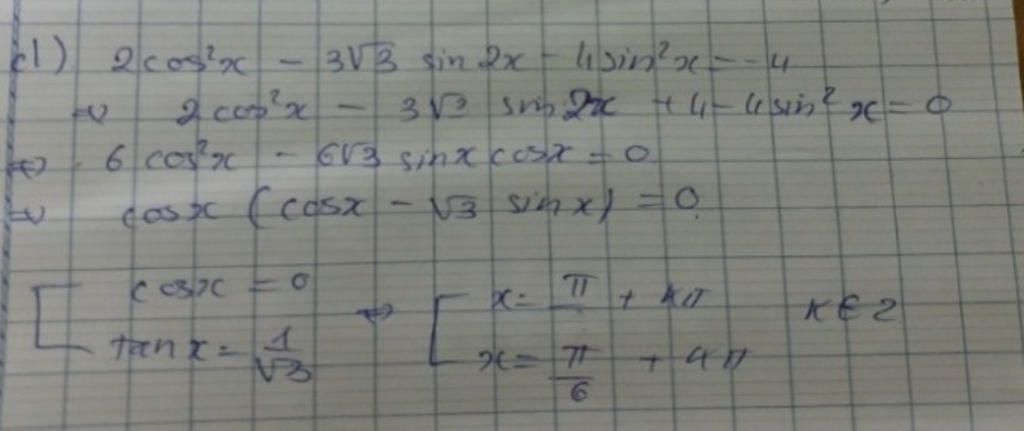 d1) 2cos²x - 3√3 sin 2x - 4sin²x = -4
⇔ 2cos²x - 3√3 sin 2x + 4 - 4sin²x = 0
⇔ 6cos²x - 6√3 sinx cosx = 0
⇔ cosx (cosx - √3 sinx) = 0
[ cosx = 0 ⇔ [ x = π/ + kπ k ∈ Z
tanx = 1/√3 x = π/6 + kπ